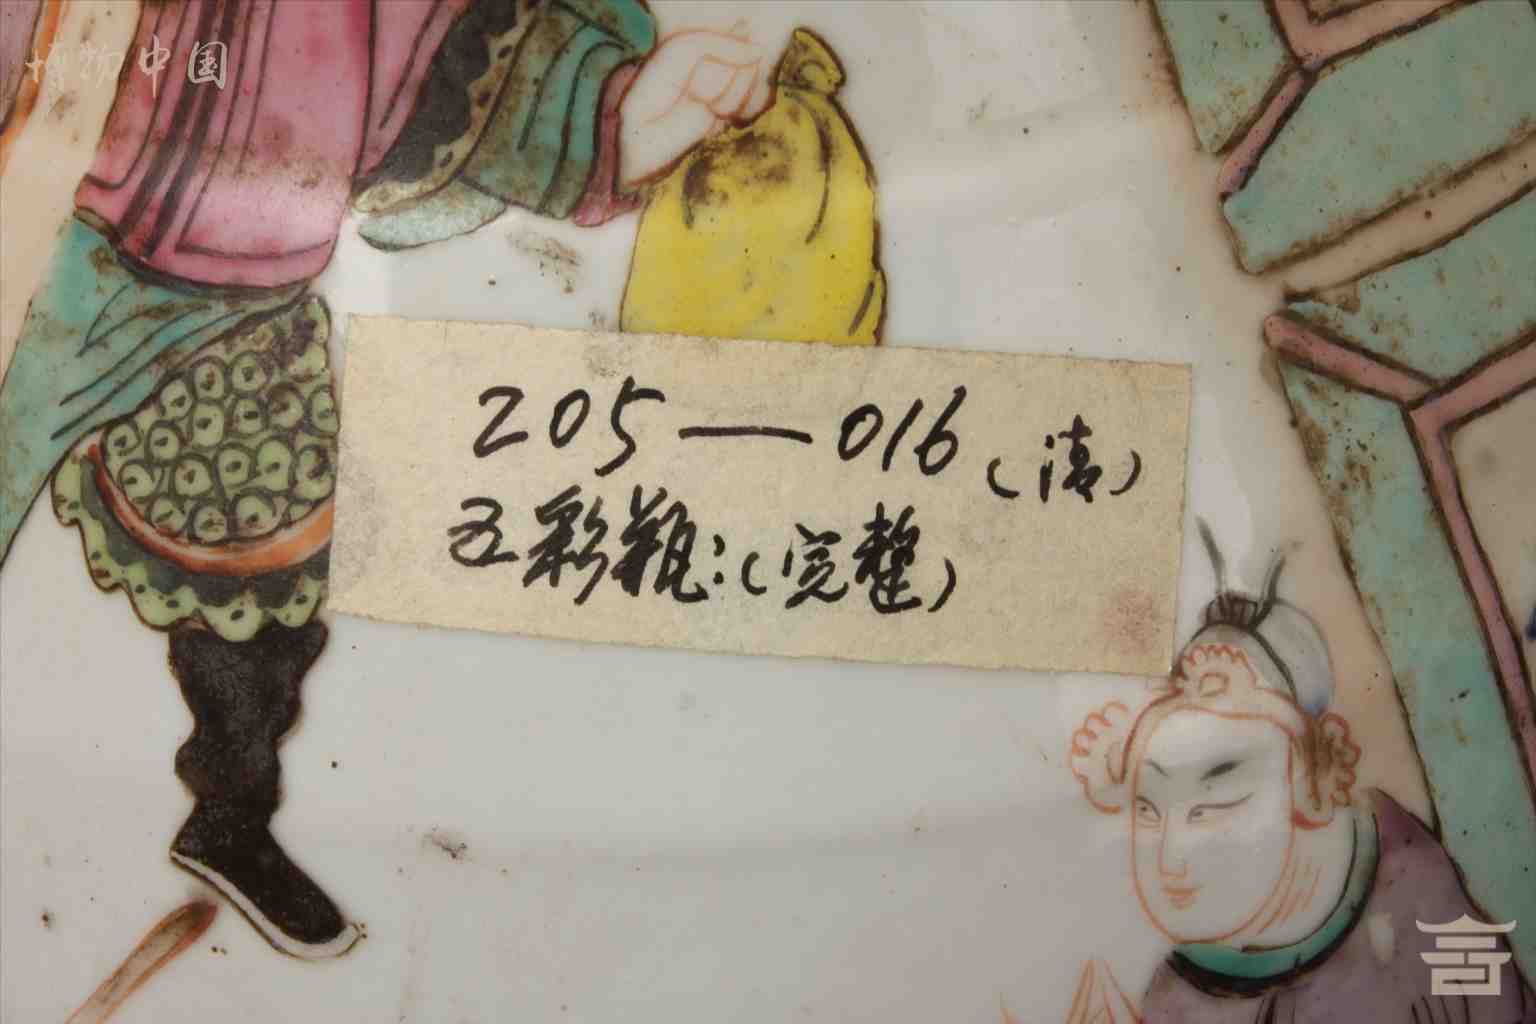 博物中国
205—016(清)
五彩瓶:(完整)